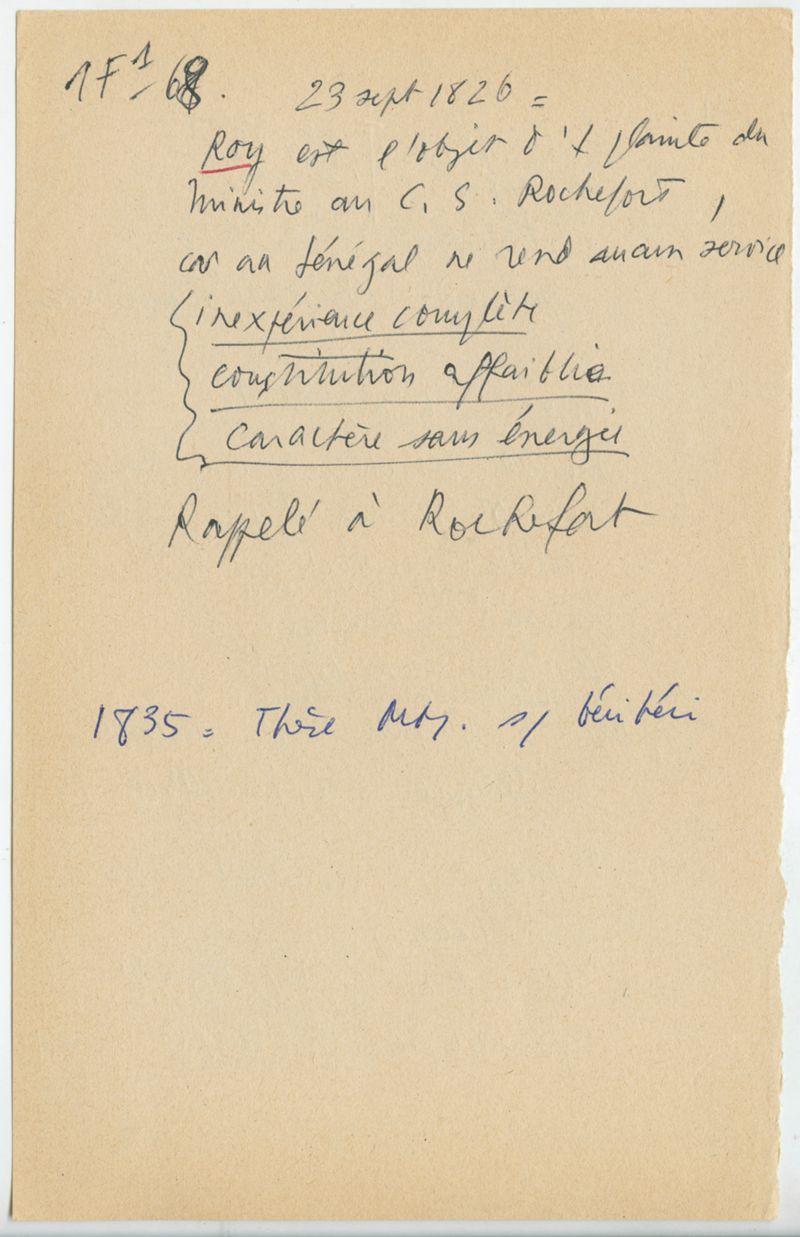 1F1-68. 23 sept 1826 =
Roy est l'objet d'1 plainte du
Ministre au C. S. Rochefort,
car au Sénégal ne rend aucun service
inexpérience complète
constitution affaiblie
caractère sans énergie
Rappelé à Rochefort
1835 = Thèse s/ béribéri